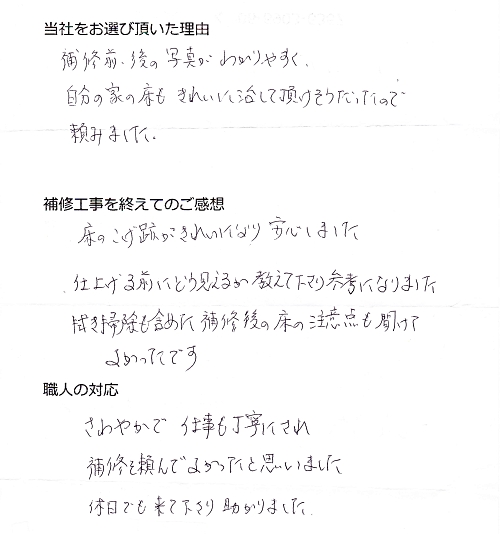 当社をお選び頂いた理由
補修前・後の写真がわかりやすく、
自分の家の床もきれいに治して頂けそうだったので
頼みました。
補修工事を終えてのご感想
床のこげ跡がきれいになり安心しました
仕上げる前にどう見えるか教えて下さり参考になりました
拭き掃除も含めた補修後の床の注意点も聞けて
よかったです
職人の対応
さわやかで仕事も丁寧にされ
補修を頼んでよかったと思いました
休日でも来て下さり助かりました。